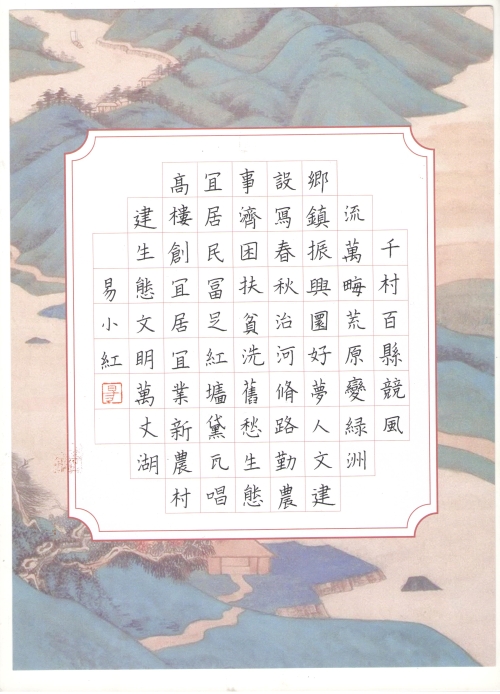 千村百縣競風
流萬畮荒原變綠洲
鄉鎮振興圓好夢人文建
設冩春秋治河脩路勤農
事濟困扶貧洗舊愁生態
宜居民冨足紅壚黛瓦唱
高樓創宜居宜業新農村
建生態文明萬丈湖
易小紅